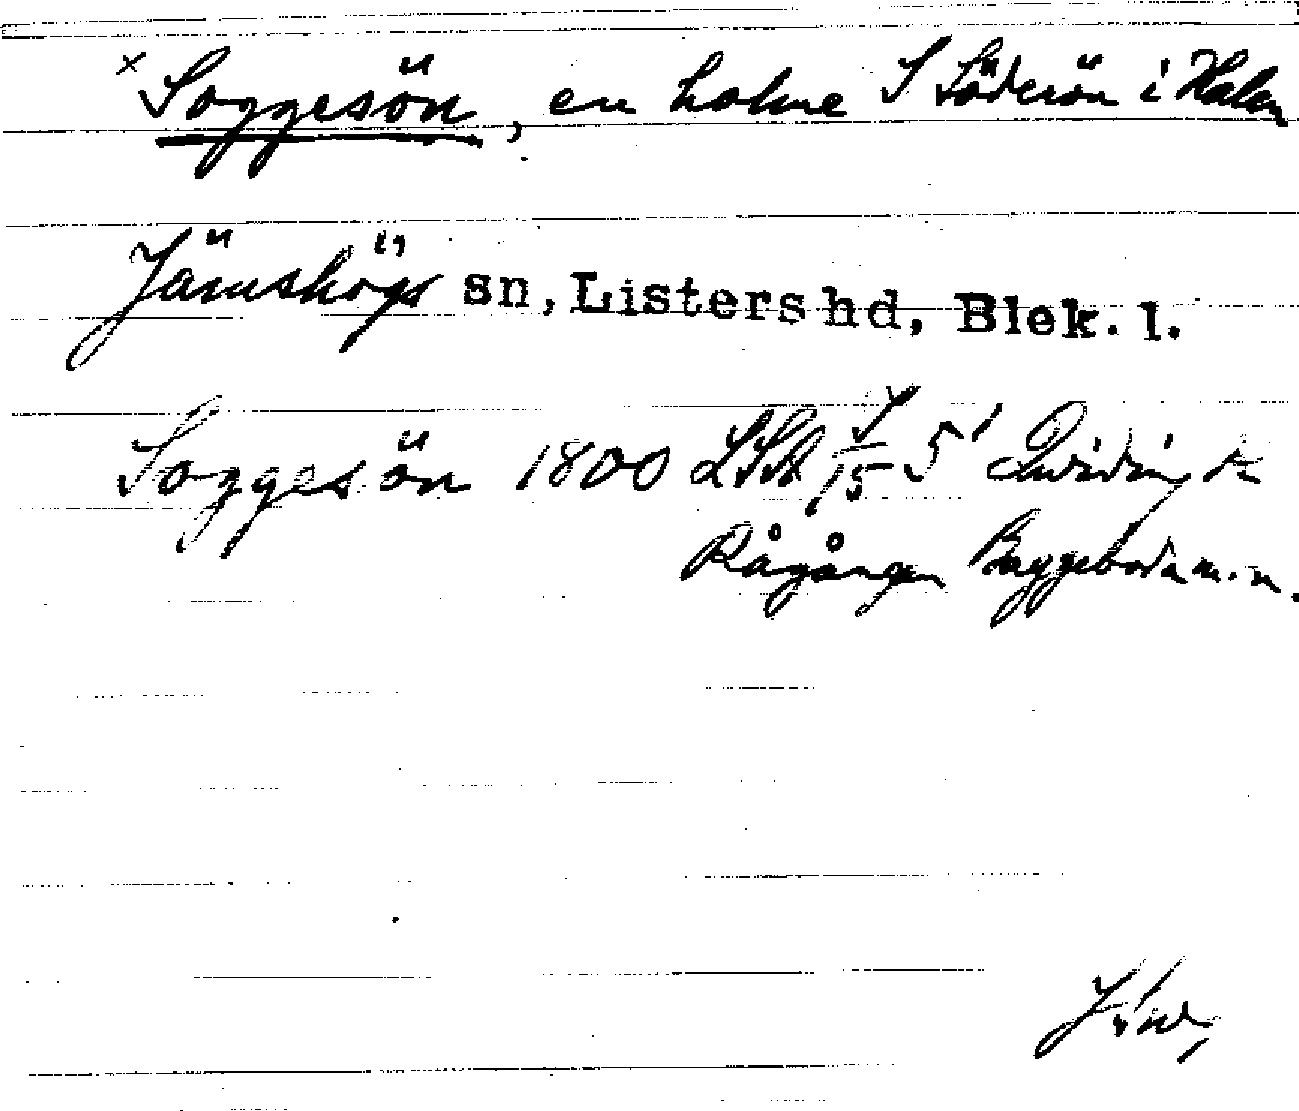 × Soggesön, en holme S Söderön i Halen
Jämshögs sn, Listers hd, Blek. l.
Soggesön 1800 LSA
Rågången Baggeboda m.m.